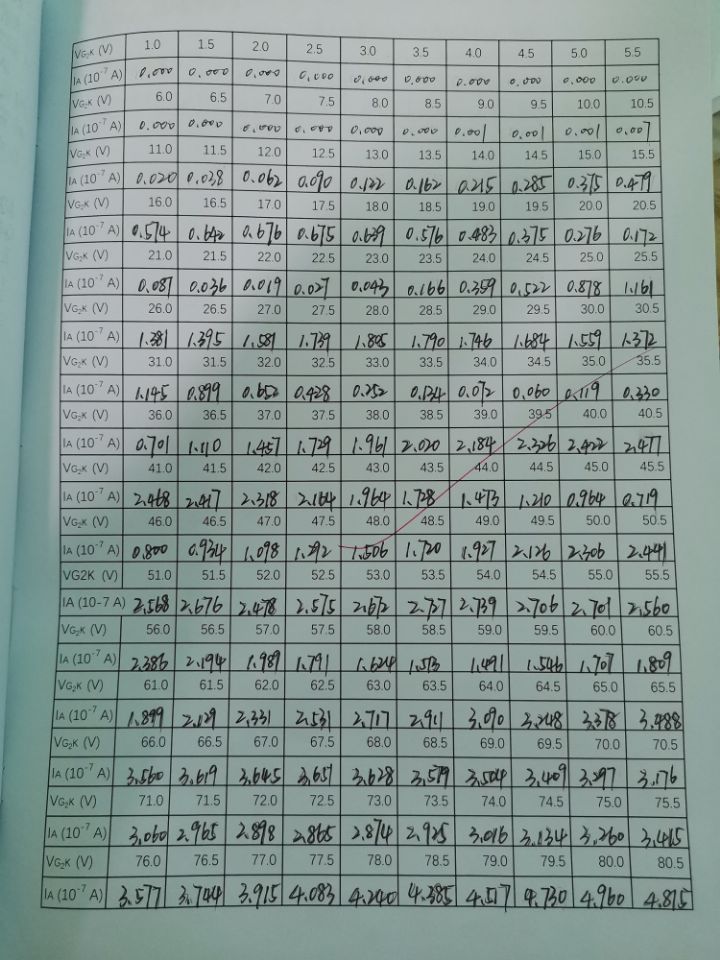 VG₂K (V) 1.0 1.5 2.0 2.5 3.0 3.5 4.0 4.5 5.0 5.5
IA (10⁻⁷ A) 0.000 0.000 0.000 0.000 0.000 0.000 0.000 0.000 0.000 0.000
VG₂K (V) 6.0 6.5 7.0 7.5 8.0 8.5 9.0 9.5 10.0 10.5
IA (10⁻⁷ A) 0.000 0.000 0.000 0.000 0.000 0.000 0.001 0.001 0.001 0.007
VG₂K (V) 11.0 11.5 12.0 12.5 13.0 13.5 14.0 14.5 15.0 15.5
IA (10⁻⁷ A) 0.020 0.038 0.062 0.090 0.122 0.162 0.215 0.285 0.375 0.479
VG₂K (V) 16.0 16.5 17.0 17.5 18.0 18.5 19.0 19.5 20.0 20.5
IA (10⁻⁷ A) 0.574 0.642 0.676 0.675 0.639 0.576 0.483 0.375 0.276 0.172
VG₂K (V) 21.0 21.5 22.0 22.5 23.0 23.5 24.0 24.5 25.0 25.5
IA (10⁻⁷ A) 0.087 0.036 0.019 0.027 0.043 0.166 0.359 0.522 0.878 1.161
VG₂K (V) 26.0 26.5 27.0 27.5 28.0 28.5 29.0 29.5 30.0 30.5
IA (10⁻⁷ A) 1.381 1.395 1.581 1.739 1.805 1.790 1.746 1.684 1.559 1.372
VG₂K (V) 31.0 31.5 32.0 32.5 33.0 33.5 34.0 34.5 35.0 35.5
IA (10⁻⁷ A) 1.145 0.899 0.652 0.428 0.252 0.134 0.072 0.060 0.119 0.330
VG₂K (V) 36.0 36.5 37.0 37.5 38.0 38.5 39.0 39.5 40.0 40.5
IA (10⁻⁷ A) 0.701 1.110 1.457 1.729 1.961 2.020 2.184 2.326 2.422 2.477
VG₂K (V) 41.0 41.5 42.0 42.5 43.0 43.5 44.0 44.5 45.0 45.5
IA (10⁻⁷ A) 2.468 2.417 2.318 2.164 1.964 1.728 1.473 1.210 0.964 0.719
VG₂K (V) 46.0 46.5 47.0 47.5 48.0 48.5 49.0 49.5 50.0 50.5
IA (10⁻⁷ A) 0.800 0.934 1.098 1.292 1.506 1.720 1.927 2.126 2.306 2.441
VG2K (V) 51.0 51.5 52.0 52.5 53.0 53.5 54.0 54.5 55.0 55.5
IA (10-7 A) 2.568 2.676 2.478 2.575 2.672 2.737 2.739 2.706 2.701 2.560
VG₂K (V) 56.0 56.5 57.0 57.5 58.0 58.5 59.0 59.5 60.0 60.5
IA (10⁻⁷ A) 2.386 2.194 1.989 1.791 1.624 1.513 1.491 1.546 1.707 1.809
VG₂K (V) 61.0 61.5 62.0 62.5 63.0 63.5 64.0 64.5 65.0 65.5
IA (10⁻⁷ A) 1.899 2.129 2.331 2.531 2.717 2.911 3.090 3.248 3.378 3.488
VG₂K (V) 66.0 66.5 67.0 67.5 68.0 68.5 69.0 69.5 70.0 70.5
IA (10⁻⁷ A) 3.560 3.619 3.645 3.651 3.628 3.579 3.504 3.409 3.297 3.176
VG₂K (V) 71.0 71.5 72.0 72.5 73.0 73.5 74.0 74.5 75.0 75.5
IA (10⁻⁷ A) 3.060 2.965 2.898 2.865 2.874 2.925 3.016 3.134 3.260 3.415
VG₂K (V) 76.0 76.5 77.0 77.5 78.0 78.5 79.0 79.5 80.0 80.5
IA (10⁻⁷ A) 3.577 3.744 3.915 4.083 4.240 4.385 4.517 4.730 4.960 4.815